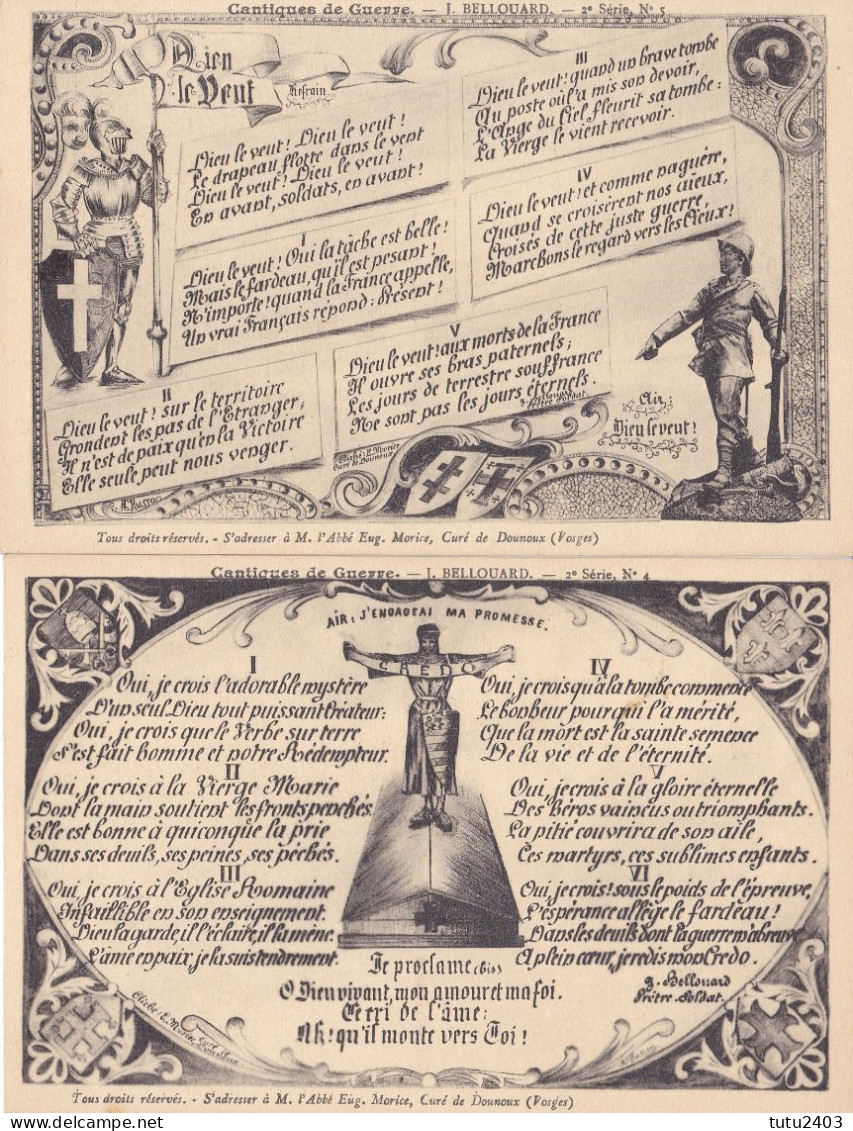 Cantiques de Guerre. — J. BELLOUARD. — 2e Série, No 5
Dieu
le Veut
Refrain
Dieu le veut! Dieu le veut!
Le drapeau flotte dans le vent
Dieu le veut! Dieu le veut!
En avant, soldats, en avant!
I
Dieu le veut! Oui la tâche est belle!
Mais le fardeau, qu'il est pesant!
N'importe! quand la France appelle,
Un vrai Français répond: Présent!
II
Dieu le veut! sur le territoire
Grondent les pas de l'Etranger;
Il n'est de paix qu'en la Victoire
Elle seule peut nous venger.
III
Dieu le veut! quand un brave tombe
Au poste où l'a mis son devoir,
L'Ange du Ciel fleurit sa tombe:
La Vierge le vient recevoir.
IV
Dieu le veut! et comme naguère,
Quand se croisèrent nos aïeux,
Croisés de cette juste guerre,
Marchons le regard vers les Cieux!
V
Dieu le veut! aux morts de la France
Il ouvre ses bras paternels;
Les jours de terrestre souffrance
Ne sont pas les jours éternels.
J. Bellouard
Prêtre Soldat.
Air:
Dieu le veut!
Cliché: E. Morice
Curé de Dounoux
Tous droits réservés. - S'adresser à M. l'Abbé Eug. Morice, Curé de Dounoux (Vosges)
Cantiques de Guerre. — J. BELLOUARD. — 2e Série, No 4
AIR: J'ENGAGEAI MA PROMESSE.
CREDO
I
Oui, je crois l'adorable mystère
D'un seul Dieu tout puissant Créateur:
Oui, je crois que le Verbe sur terre
S'est fait homme et notre Rédempteur.
II
Oui, je crois à la Vierge Marie
Dont la main soutient les fronts penchés.
Elle est bonne à quiconque la prie
Dans ses deuils, ses peines, ses péchés.
III
Oui, je crois à l'Eglise Romaine
Infaillible en son enseignement.
Dieu la garde, il l'éclaire, il la mène.
L'âme en paix, je la suis tendrement.
IV
Oui, je crois qu'à la tombe commence
Le bonheur pour qui l'a mérité,
Que la mort est la sainte semence
De la vie et de l'éternité.
V
Oui, je crois à la gloire éternelle
Des Héros vaincus ou triomphants.
La pitié couvrira de son aile,
Ces martyrs, ces sublimes enfants.
VI
Oui, je crois! sous le poids de l'épreuve,
L'espérance allège le fardeau!
Dans les deuils dont la guerre m'abreuve
A plein cœur, je redis mon Credo.
J. Bellouard
Prêtre-Soldat.
Je proclame (bis)
O Dieu vivant, mon amour et ma foi.
Ce cri de l'âme:
Ah! qu'il monte vers Toi!
Cliché: E. Morice, Curé
Tous droits réservés. - S'adresser à M. l'Abbé Eug. Morice, Curé de Dounoux (Vosges)
tutu2403